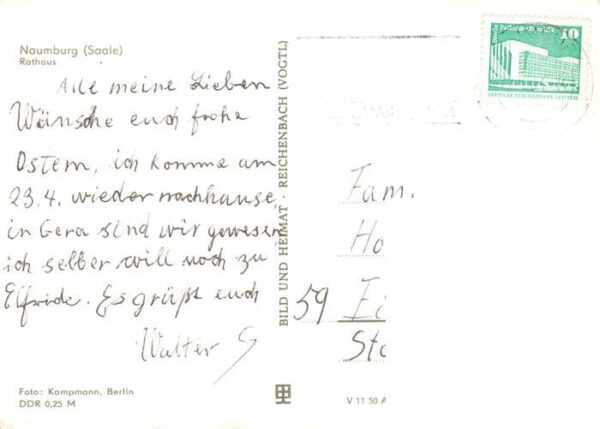 Naumburg (Saale)
Rathaus
Alle meine Lieben
Wünsche euch frohe
Ostern, ich komme am
23.4. wieder nachhause,
in Gera sind wir gewesen
ich selber will noch zu
Elfride. Es grüßt euch
Walter S
Foto: Kampmann, Berlin
DDR 0,25 M
BILD UND HEIMAT REICHENBACH (VOGTL)
10
DEUTSCHE DEMOKRATISCHE REPUBLIK
Fam.
Ho
59 Ei
Sta
V 11 50 A